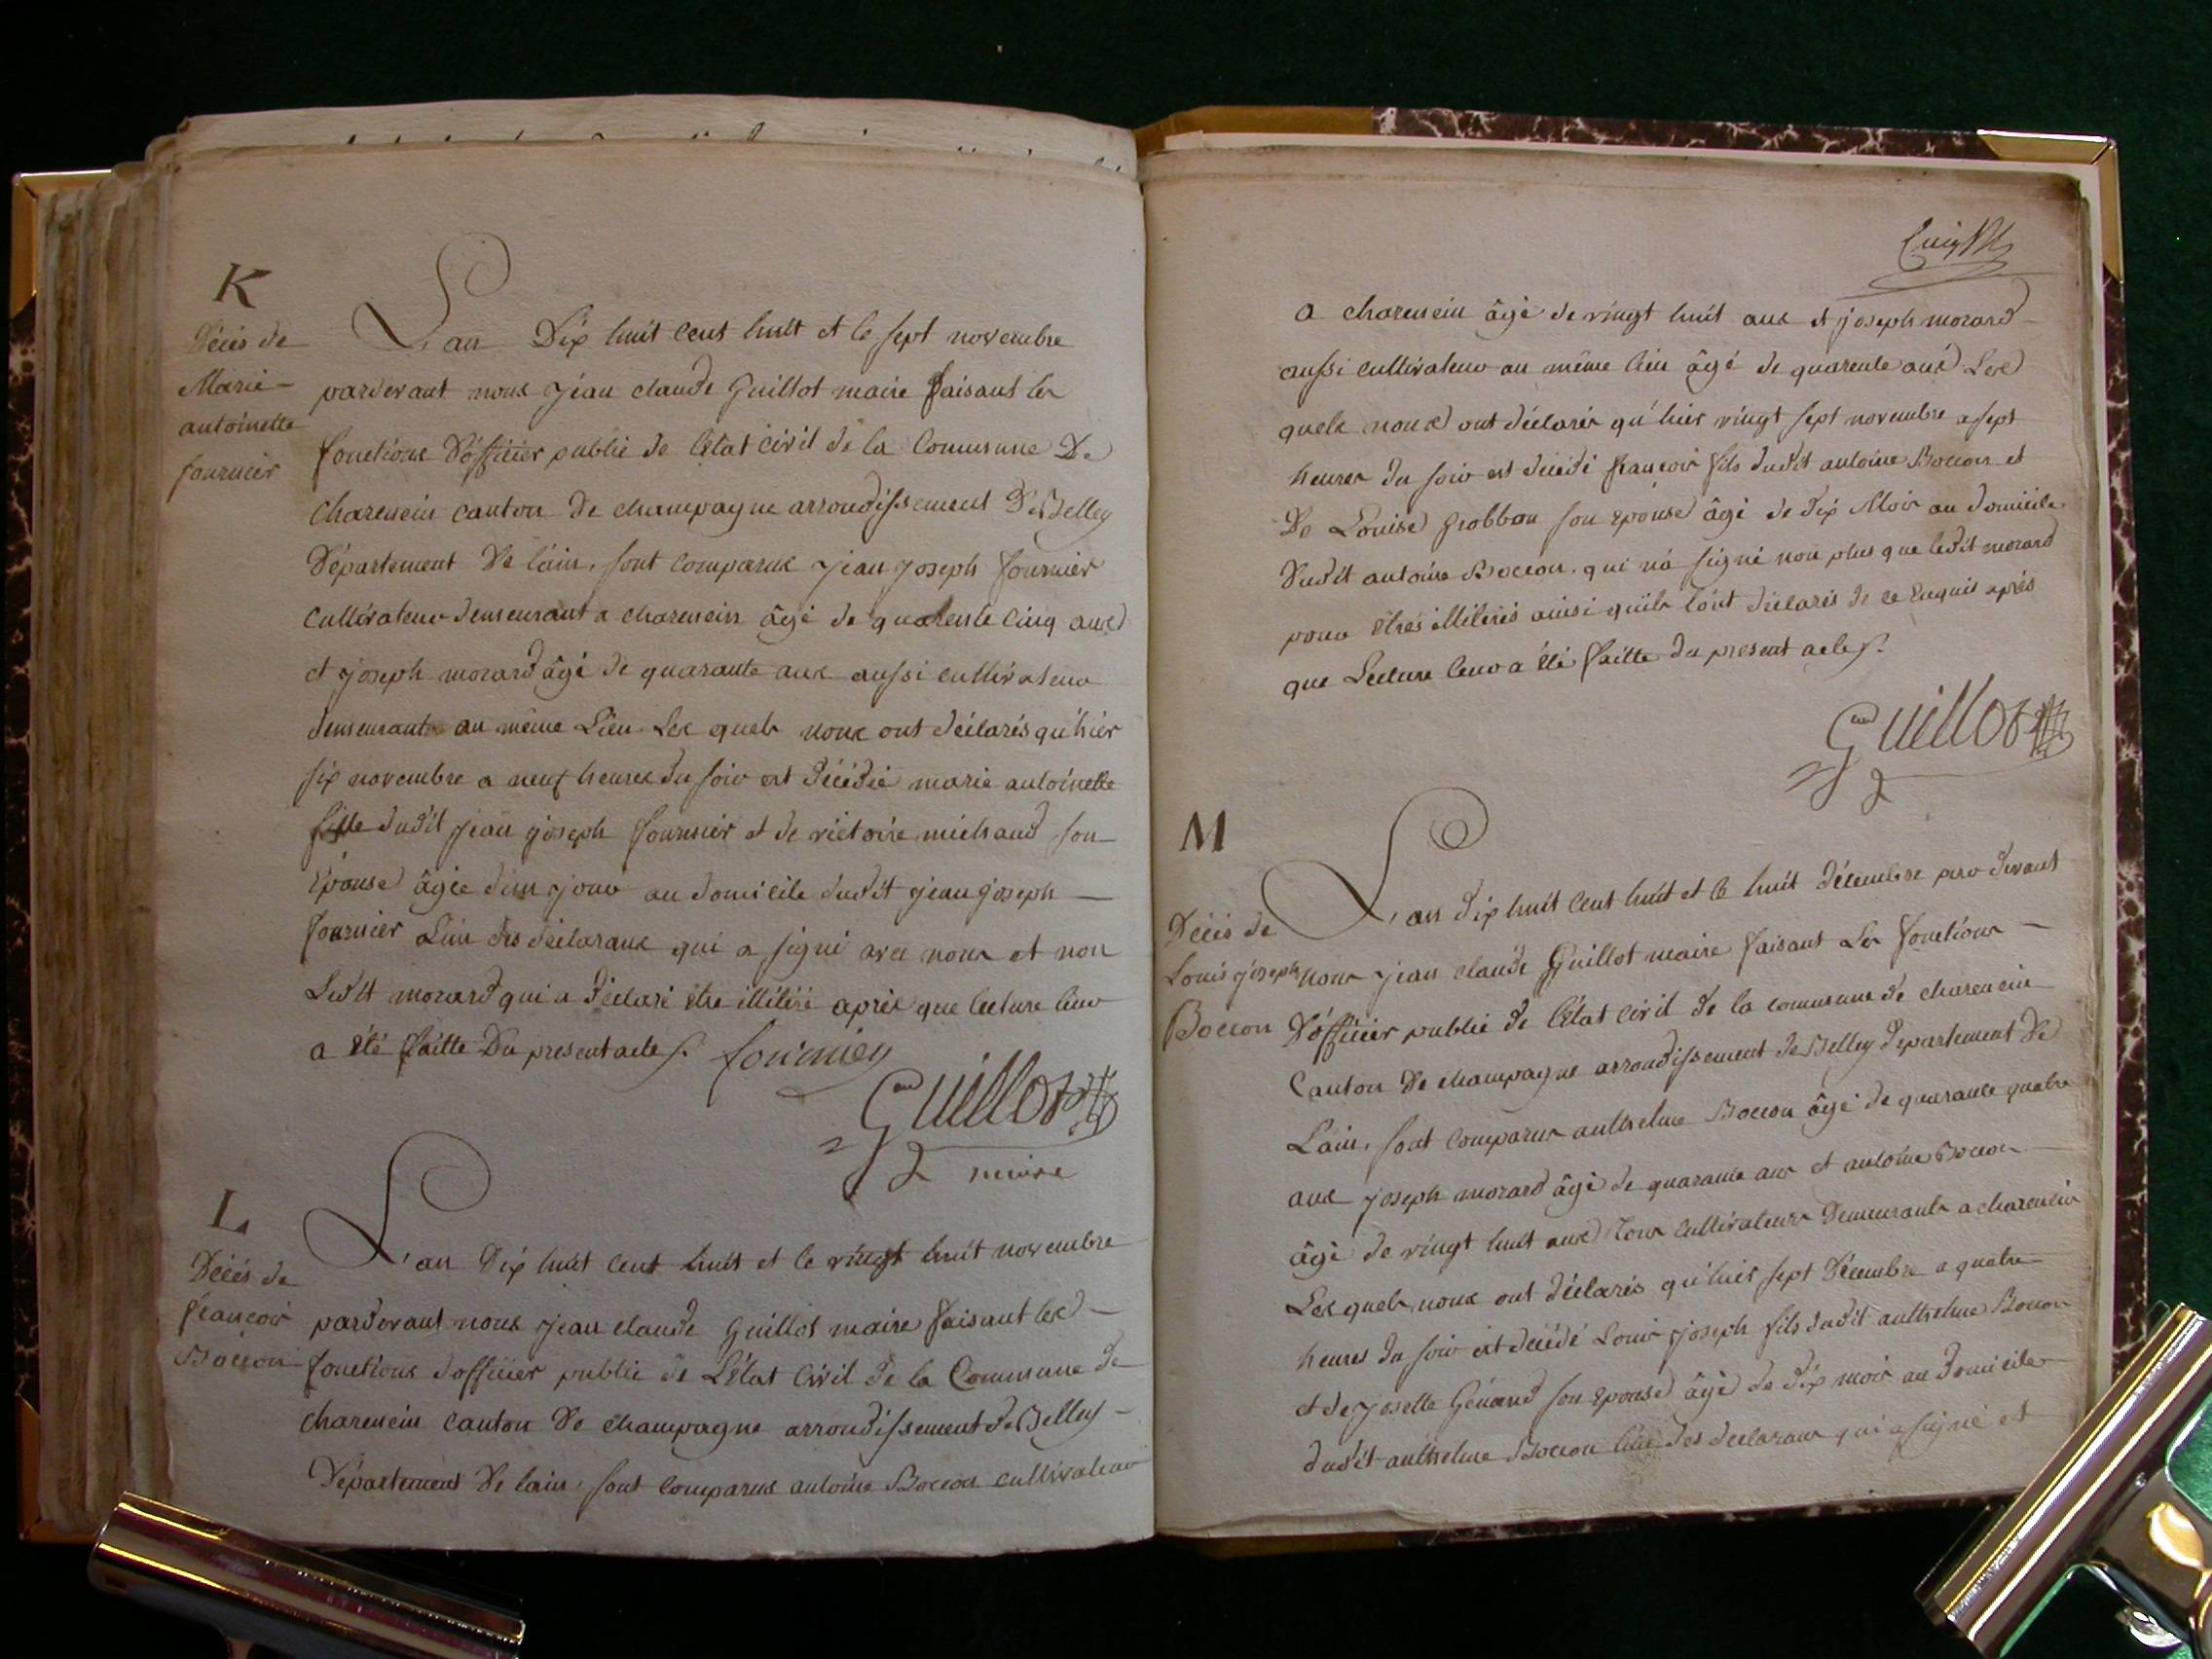 K
Décès de
Marie-
antoinette
fournier
L'an Dix huit cent huit et le sept novembre
pardevant nous jean claude Guillot maire faisant les
fonctions d'officier public de l'Etat Civil de la Commune De
charencin canton De champagne arrondissement De Belley
Département De l'ain, sont comparus jean joseph fournier
Cultivateur demeurant a charencin âgé de quarente cinq ans
et joseph morard âgé de quarante ans aussi cultivateur
demeurant au même Lieu Les quels nous ont déclarés qu'hier
six novembre a neuf heures du soir est décédée marie antoinette
fille dudit jean joseph fournier et de victoire michaud son
Epouse âgée d'un jour au domicile dudit jean joseph
fournier L'un des déclarans qui a signé avec nous et non
Ledit morard qui a déclaré être illitéré après que lecture leur
a été faitte Du present acte /.
fournier
Guillot
maire
L
Décès de
françois
Boccon
L'an Dix huit cent huit et le vingt huit novembre
pardevant nous jean claude Guillot maire faisant les
fonctions d'officier public de L'Etat Civil de la Commune de
charencin canton De champagne arrondissement de Belley
Département De l'ain, sont comparus antoine Boccon cultivateur
a charencin âgé de vingt huit ans et joseph morard
aussi cultivateur au même lieu âgé de quarente ans Les
quels nous ont déclarés qu'hier vingt sept novembre a sept
heures du soir est décédé françois fils dudit antoine Boccon et
De Louise son epouse âgé de dix Mois au domicile
dudit antoine Boccon. qui n'a signé non plus que ledit morard
pour êtres illitérés ainsi qu'ils l'ont déclarés de ce enquis après
que Lecture leur a été faitte du present acte /.
Guillot
M
Décès de
Louis joseph
Boccon
L'an dix huit cent huit et le huit décembre par devant
nous jean claude Guillot maire faisant Les fonctions
D'officier public de l'Etat Civil de la commune de charencin
Canton De champagne arrondissement de Belley departement De
L'ain, sont comparus anthelme Boccon âgé de quarante quatre
ans joseph morard âgé de quarante ans et antoine Boccon
âgé de vingt huit ans tous cultivateurs Demeurants a charencin
Les quels nous ont déclarés qu'hier sept Décembre a quatre
heures du soir est décédé Louis joseph fils dudit anthelme Boccon
et de josette son epouse âgé de dix mois au domicile
dudit anthelme Boccon L'un des declarans qui a signé et